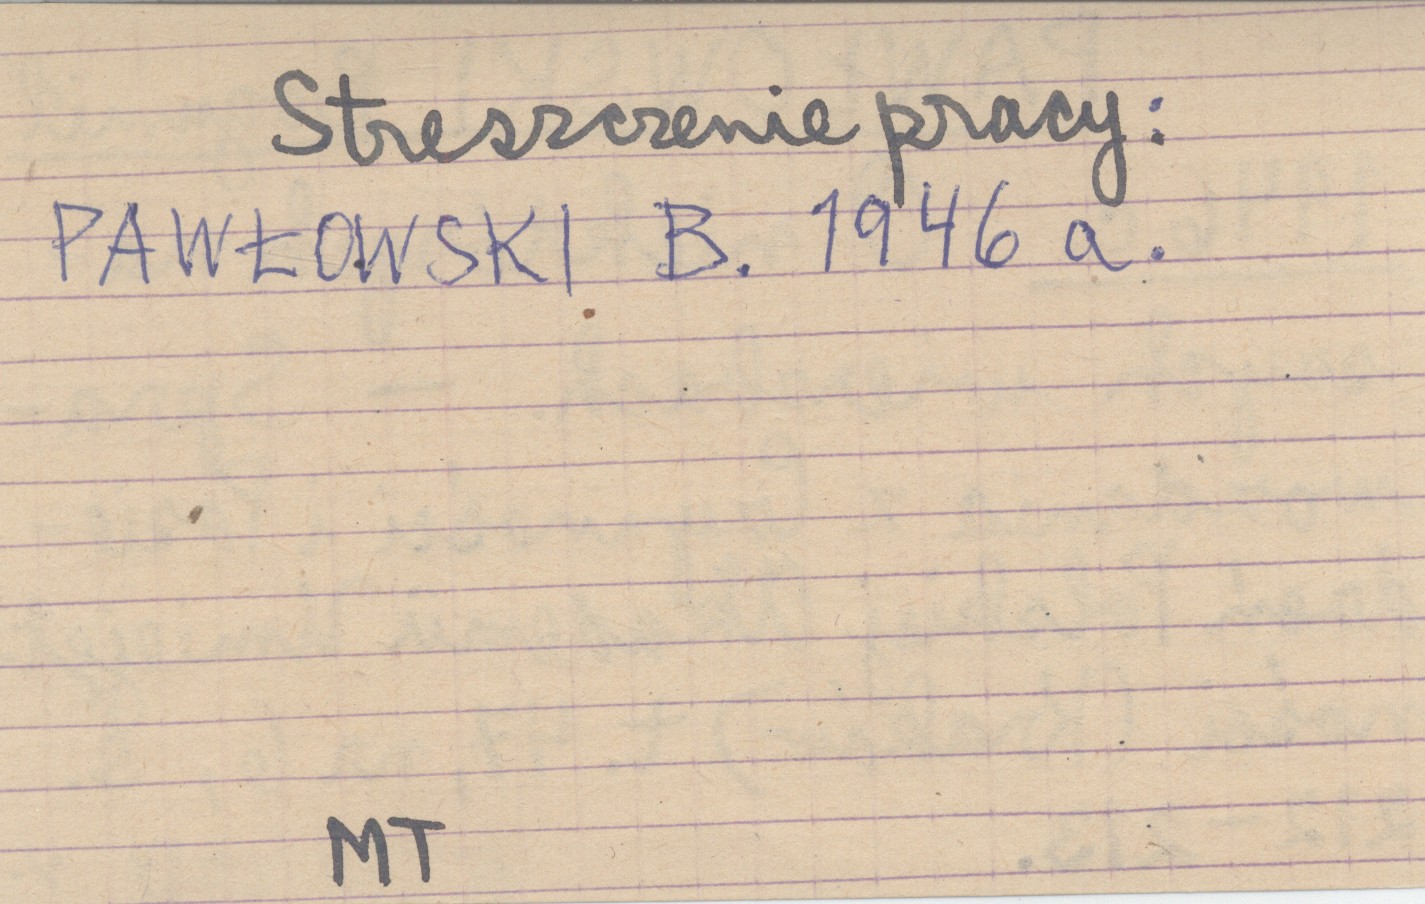 Streszczenie pracy:
PAWŁOWSKI B. 1946 a.
MT